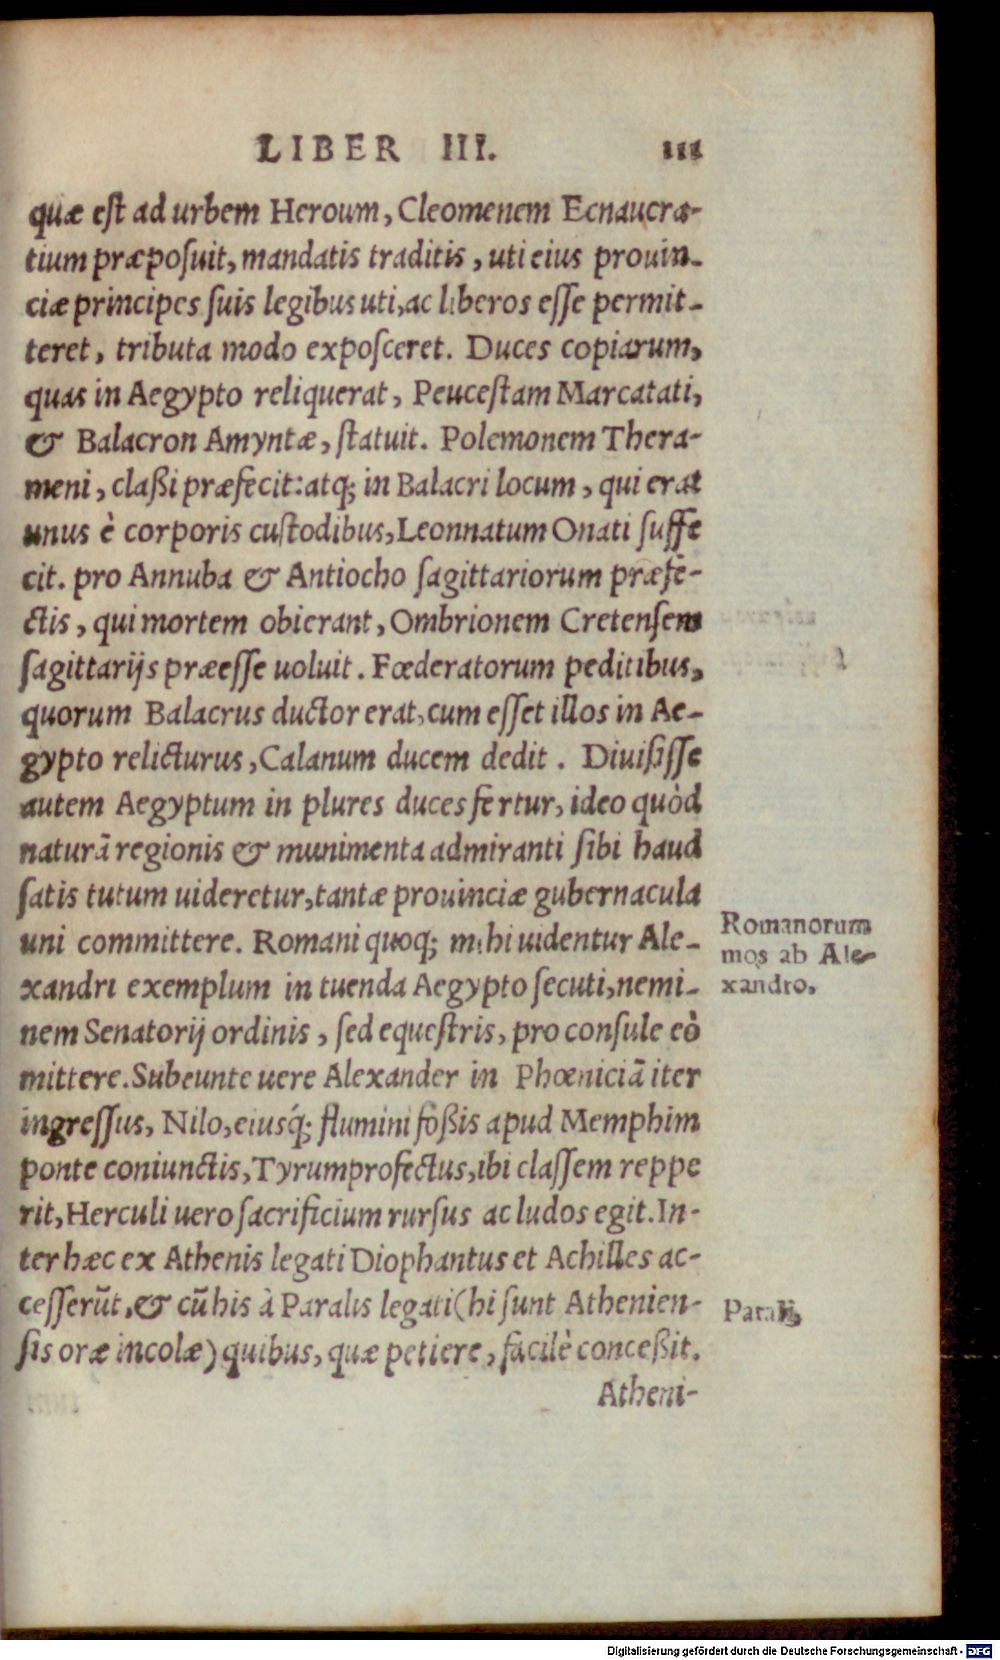 LIBER III. 111
quæ est ad urbem Heroum, Cleomenem Ecnaucra-
tium præposuit, mandatis traditis, uti eius prouin-
ciæ principes suis legibus uti, ac liberos esse permit-
teret, tributa modo exposceret. Duces copiarum,
quas in Aegypto reliquerat, Peucestam Marcatati,
& Balacron Amyntæ, statuit. Polemonem Thera-
meni, claßi præfecit: atq; in Balacri locum, qui erat
unus è corporis custodibus, Leonnatum Onati suffe
cit. pro Annuba & Antiocho sagittariorum præfe-
ctis, qui mortem obierant, Ombrionem Cretensem
sagittarijs præesse uoluit. Fœderatorum peditibus,
quorum Balacrus ductor erat, cum esset illos in Ae-
gypto relicturus, Calanum ducem dedit. Diuißsse
autem Aegyptum in plures duces fertur, ideo quòd
naturā regionis & munimenta admiranti sibi haud
satis tutum uideretur, tantæ prouinciæ gubernacula
uni committere. Romani quoq; mihi uidentur Ale-
xandri exemplum in tuenda Aegypto secuti, nemi-
nem Senatorij ordinis, sed equestris, pro consule eò
mittere. Subeunte uere Alexander in Phœniciā iter
ingressus, Nilo, eiusq́; flumini foßis apud Memphim
ponte coniunctis, Tyrum profectus, ibi classem reppe
rit, Herculi uero sacrificium rursus ac ludos egit. In-
ter hæc ex Athenis legati Diophantus et Achilles ac-
cesserūt, & cū his à Paralis legati (hi sunt Athenien-
sis oræ incolæ) quibus, quæ petiere, facilè conceßit.
Atheni-
Romanorum
mos ab Ale-
xandro.
Parali,
Digitalisierung gefördert durch die Deutsche Forschungsgemeinschaft - DFG